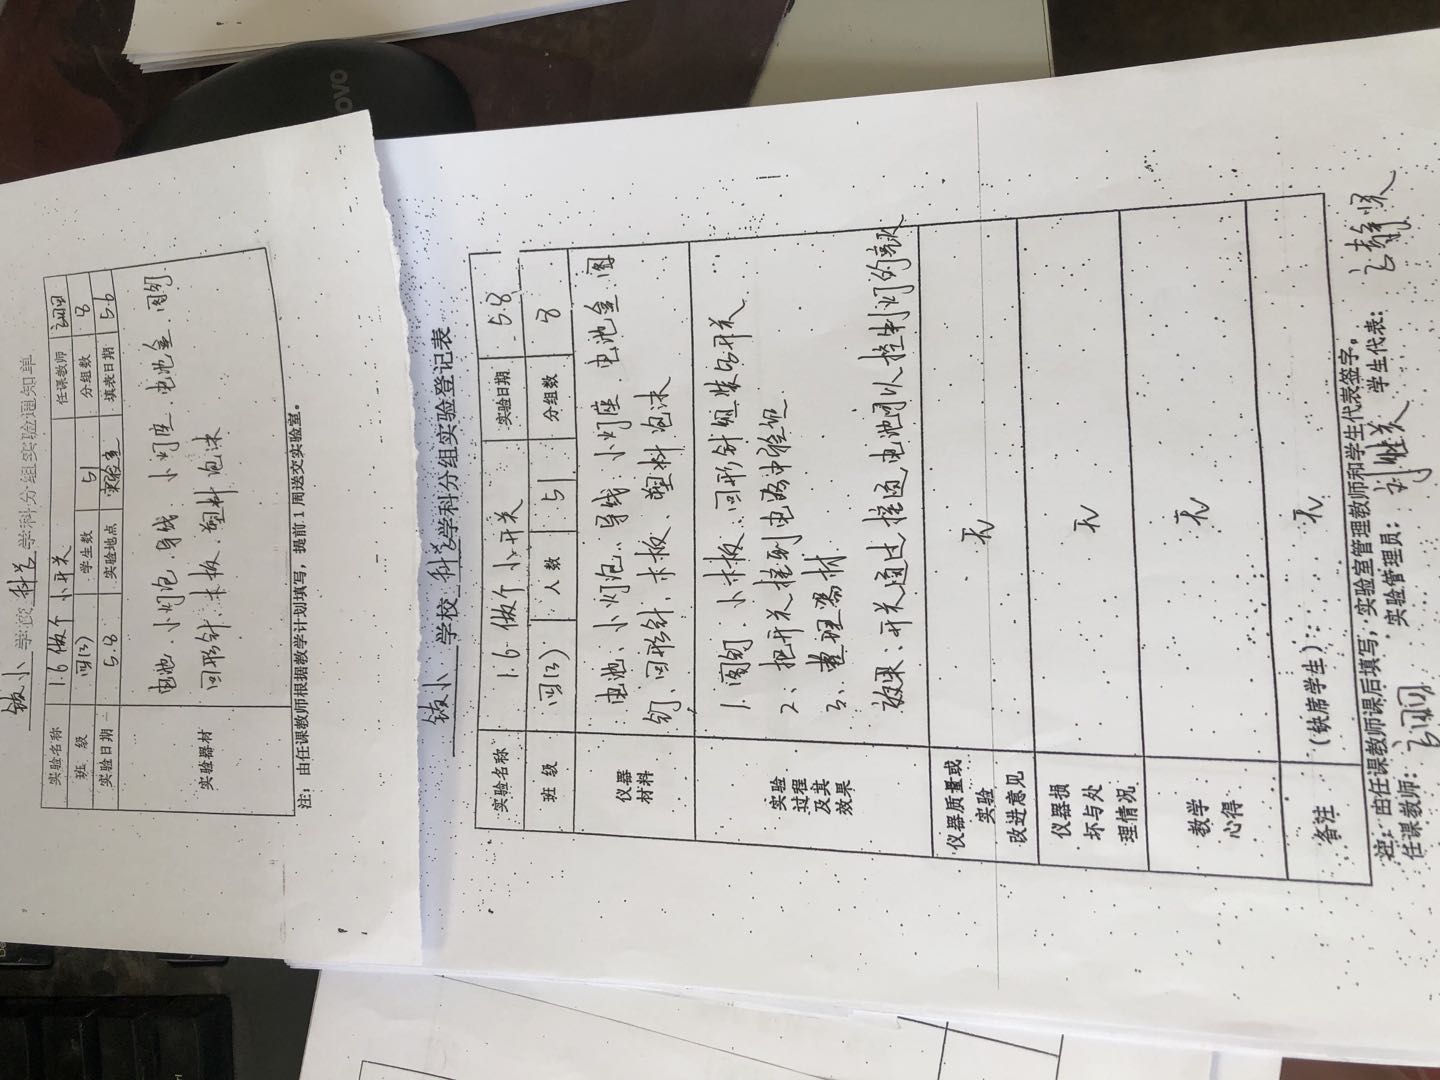 钹小 学校 科学 学科分组实验通知单
实验名称 1.6做个小开关 任课教师
班 级 四(3) 学生数 51 分组数 8
实验日期 5.8 实验地点 实验室 填表日期 5.6
实验器材 电池、小灯泡、导线、小灯座、电池盒、图钉
回形针、木板、塑料泡沫
注：由任课教师根据教学计划填写，提前1周送交实验室。
钹小 学校 科学 学科分组实验登记表
实验名称 1.6做个小开关 实验日期 5.8
班 级 四(3) 人 数 51 分组数 8
仪器材料 电池、小灯泡、导线、小灯座、电池盒、图
钉、回形针、木板、塑料泡沫
实验过程及其效果 1、图钉、小木板、回形针组装成开关
2、把开关接到电路中检测
3、整理器材
效果：开关通过接通电池可以控制灯的亮灭
仪器质量或实验改进意见 无
仪器损坏与处理情况 无
教学心得 无
备注 （缺席学生） 无
注：由任课教师课后填写，实验室管理教师和学生代表签字。
任课教师： 实验管理员： 学生代表：